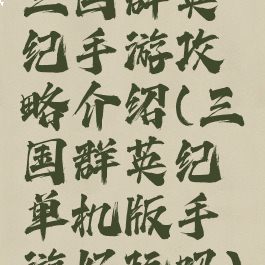 三国群英
纪手游攻
略介绍(三
国群英纪
单机版手
游好玩吗)